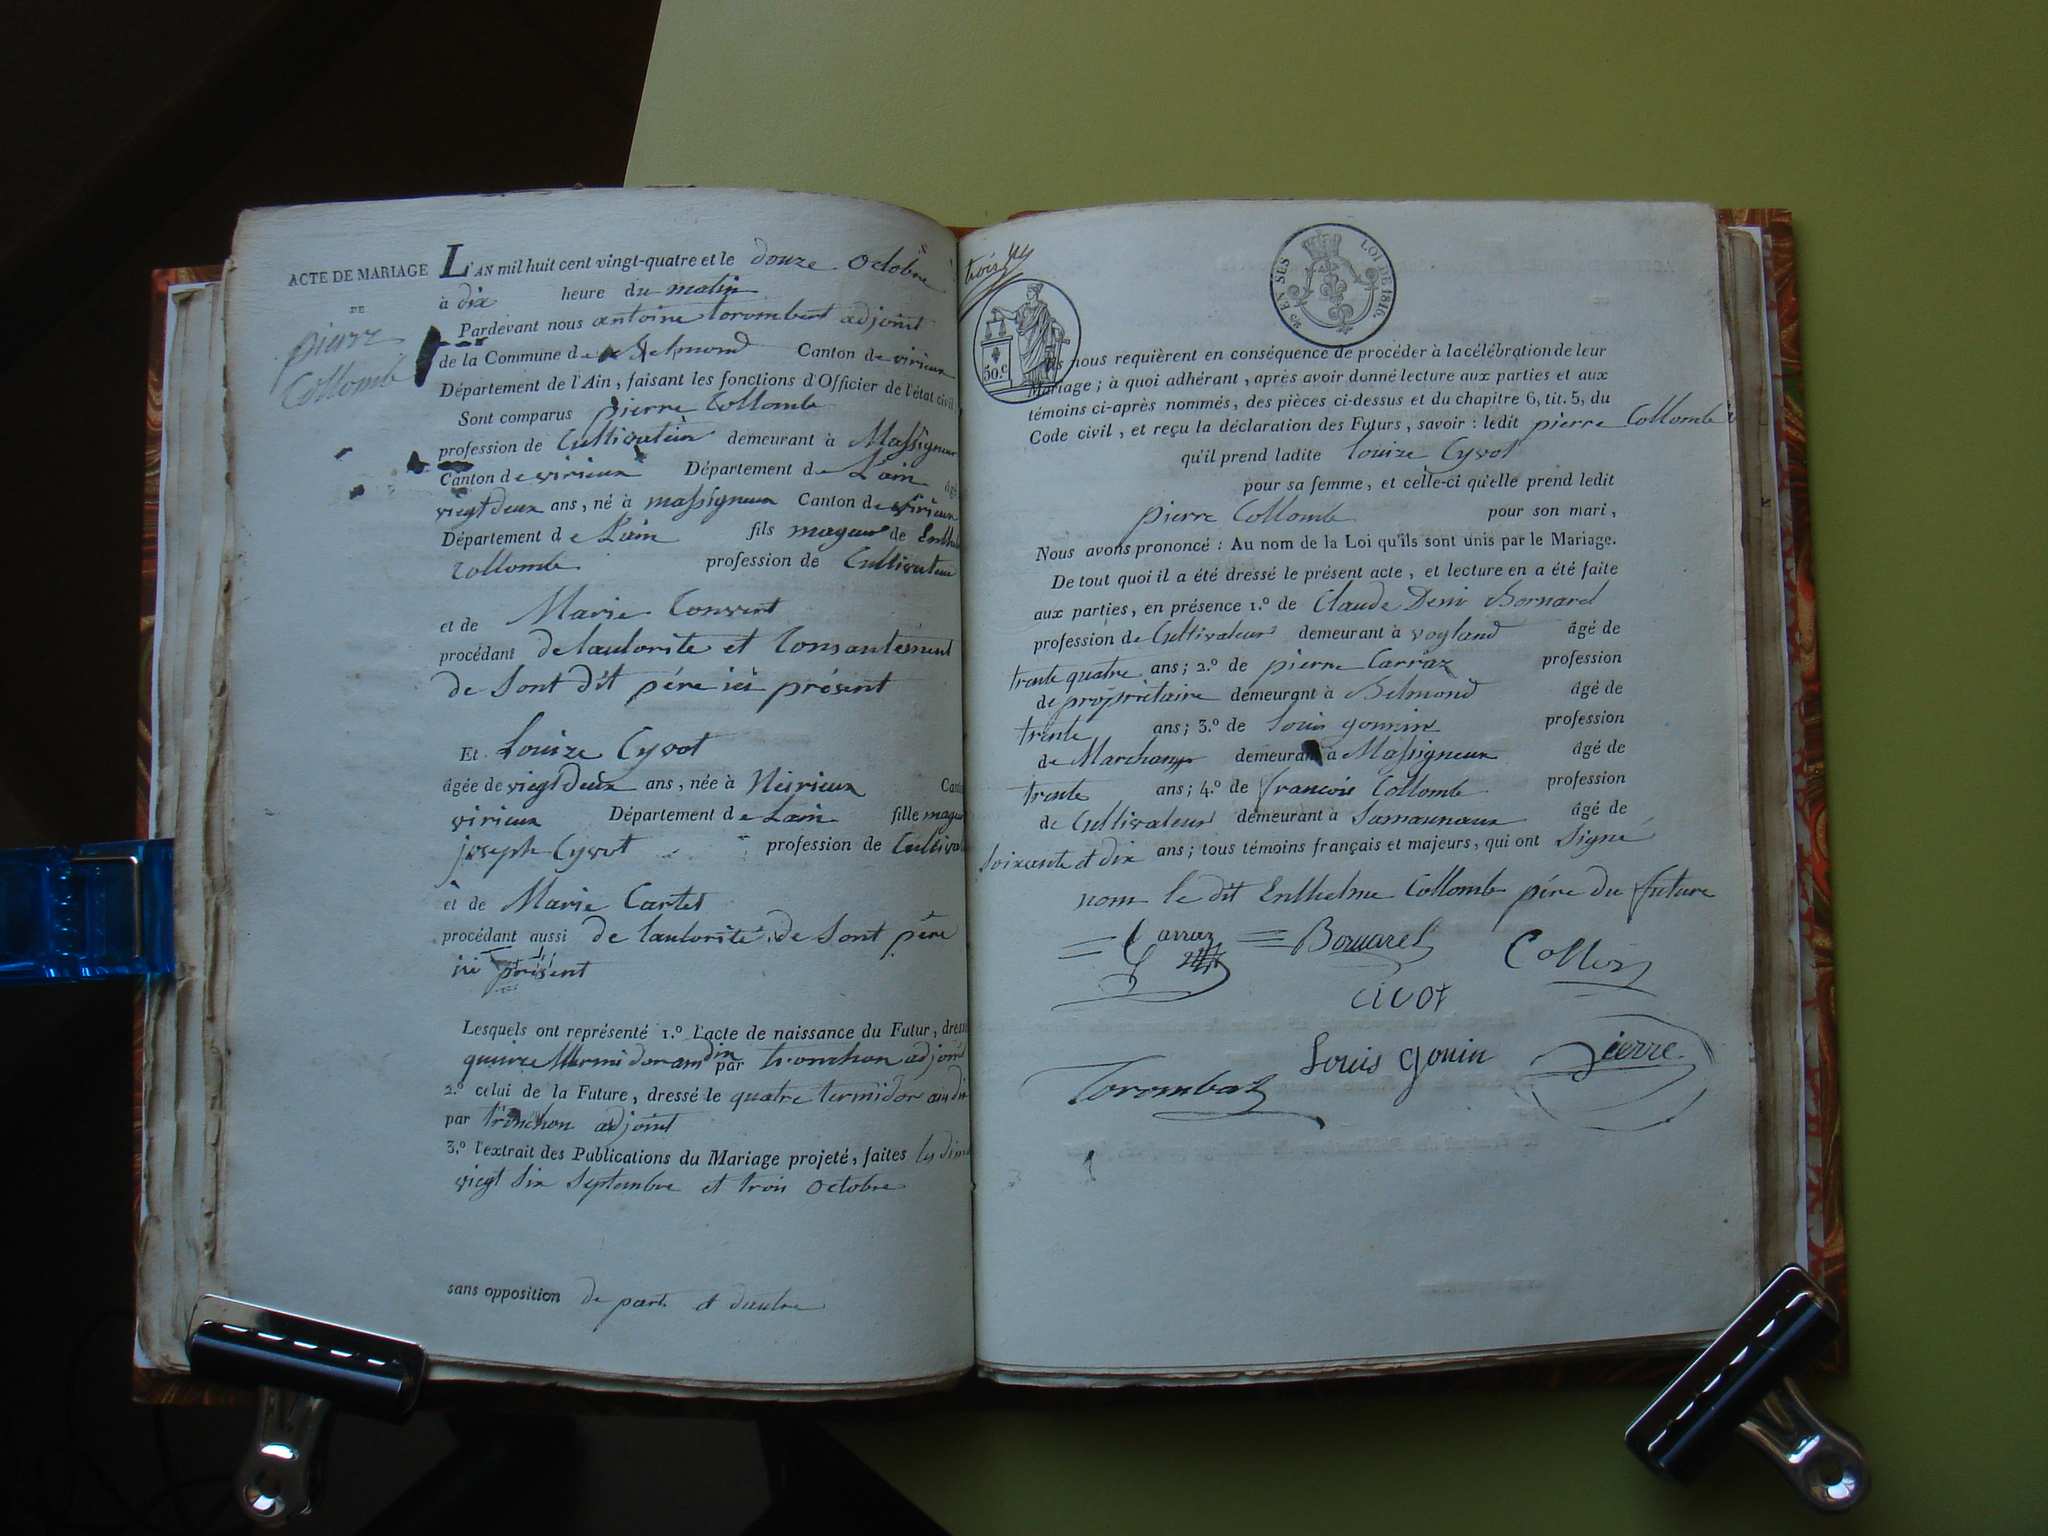 ACTE DE MARIAGE
DE
pierre
Collomb
L'AN mil huit cent vingt-quatre et le douze octobre
à dix heure du matin
Pardevant nous antoine torombert adjoint
de la Commune de Belmond Canton de virieux
Département de l'Ain, faisant les fonctions d'Officier de l'état civil
Sont comparus pierre Collomb
profession de Cultivateur demeurant à Massigneux
Canton de virieux Département de Lain âgé
viegt deux ans, né à massigneux Canton de virieux
Département de Lain fils mageur de
Collomb profession de Cultivateur
et de Marie Convert
procédant de lautorite et Consantement
de Sont dit pére ici présent
Et Louize Cyvot
âgée de viegt deux ans, née à
virieux Département de Lain fille mageu
joseph Cyvot profession de Cultiva
et de Marie Cartet
procédant aussi de lautorité de Sont pére
ici présent
Lesquels ont représenté 1.º l'acte de naissance du Futur, dressé
par tronchon adjoint
2.º celui de la Future, dressé le quatre termidor an dix
par tronchon adjoint
3.º l'extrait des Publications du Mariage projeté, faites les dim
viegt Six Septembre et trois octobre
sans opposition de part et dautre
trois
50.c
EN SUS
LOI DE 1816.
Ils nous requièrent en conséquence de procéder à la célébration de leur
Mariage; à quoi adhérant, après avoir donné lecture aux parties et aux
témoins ci-après nommés, des pièces ci-dessus et du chapitre 6, tit. 5, du
Code civil, et reçu la déclaration des Futurs, savoir: ledit pierre Collomb
qu'il prend ladite Louize Cyvot
pour sa femme, et celle-ci qu'elle prend ledit
pierre Collomb pour son mari,
Nous avons prononcé: Au nom de la Loi qu'ils sont unis par le Mariage.
De tout quoi il a été dressé le présent acte, et lecture en a été faite
aux parties, en présence 1.º de Claude Deni Bornard
profession de Cultivateur demeurant à voyland âgé de
trente quatre ans; 2.º de pierre Carraz profession
de propriétaire demeurant à Belmond âgé de
trente ans; 3.º de Louis gonnin profession
de Marchamp demeurant à Massigneux âgé de
trente ans; 4.º de francois Collomb profession
de Cultivateur demeurant à Samaunaux âgé de
Soixante et dix ans; tous témoins français et majeurs, qui ont Signé
nom le dit Enthelme Collomb pére du future
Carraz Bornarel Collon
CIVOT
Louis gonin pierre
Torombert